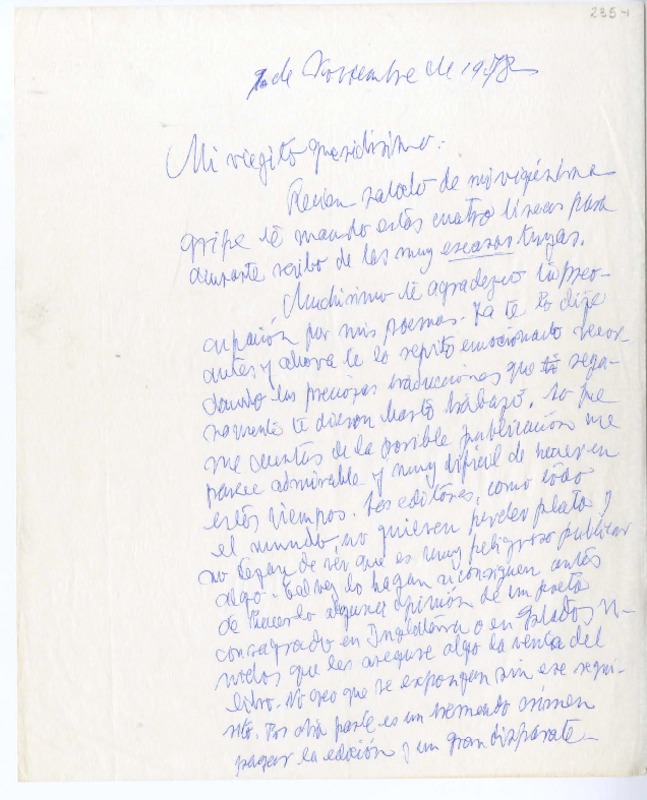 235-1
de Noviembre de 1978
Mi viegito queridisimo:
Recien salido de mi vigésima
gripe te mando estas cuatro lineas para
acusarte recibo de las muy escasas tuyas.
Muchisimo te agradezco la preo-
cupación por mis poemas. Ya te lo dije
antes y ahora te lo repito emocionado recor-
dando las preciosas traducciones que segu-
ramente te dieron harto trabajo. Lo que
me cuentas de la posible publicación me
parece admirable y muy dificil de hacer en
estos tiempos. Los editores, como todo
el mundo, no quieren perder plata y
no dejan de ver que es muy peligroso publicar
algo. Tal vez lo hagan si consiguen antes
de hacerlo alguna opinión de un poeta
consagrado en Inglaterra o en Estados U-
nidos que les asegure algo la venta del
libro. No creo que se expongan sin ese requi-
sito. Por otra parte es un tremendo crimen
pagar la edición y un gran disparate